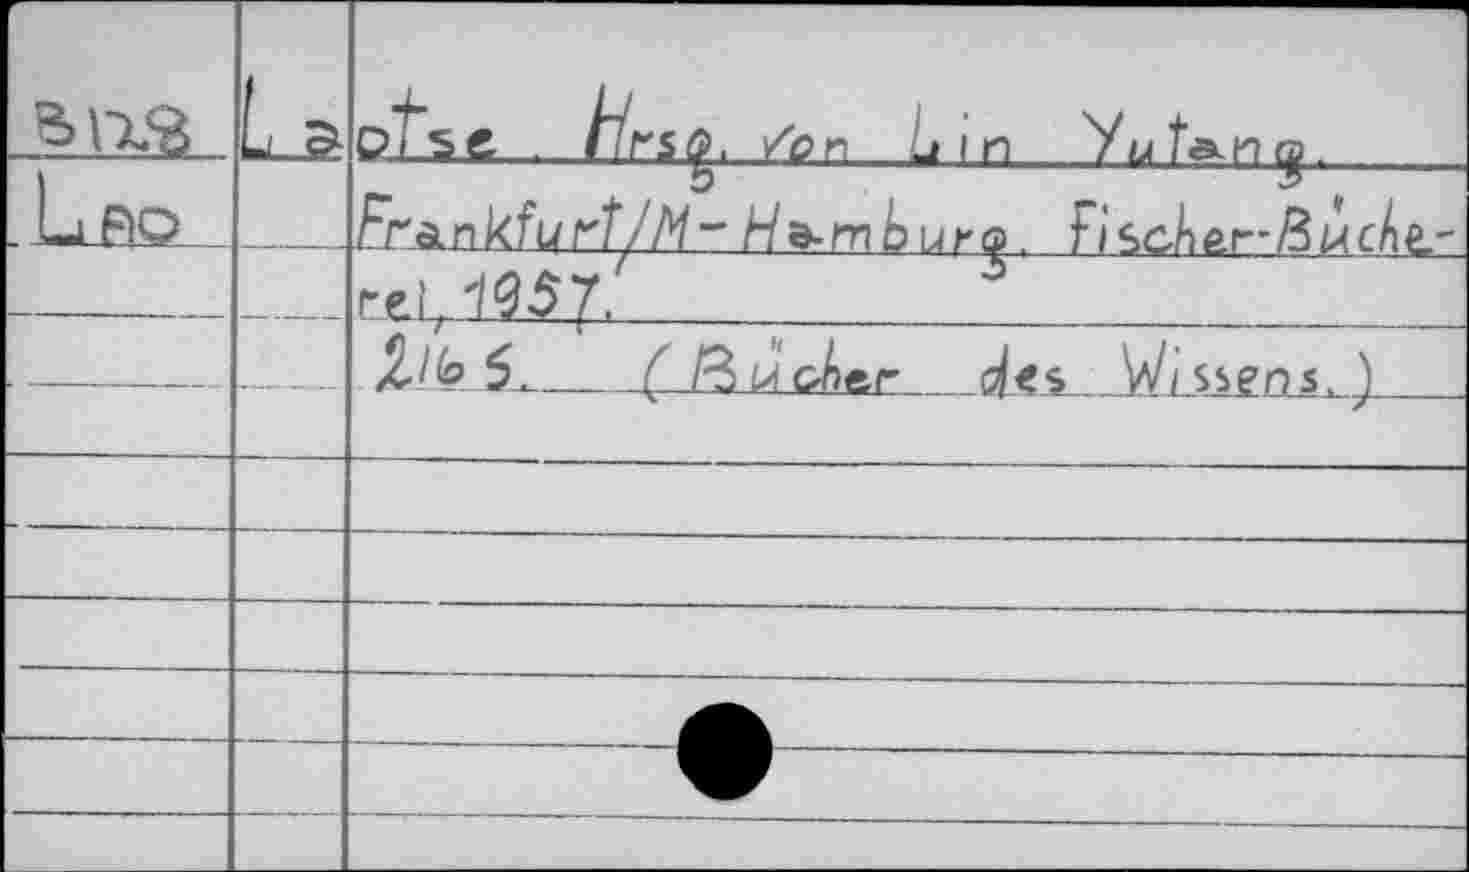 Laotse. Hrsg. von Lin Yutang.
Lao Frankfurt/M-Hamburg. Fischer-Büche-
rei, 1957.
216 S. (Bücher des Wissens.)